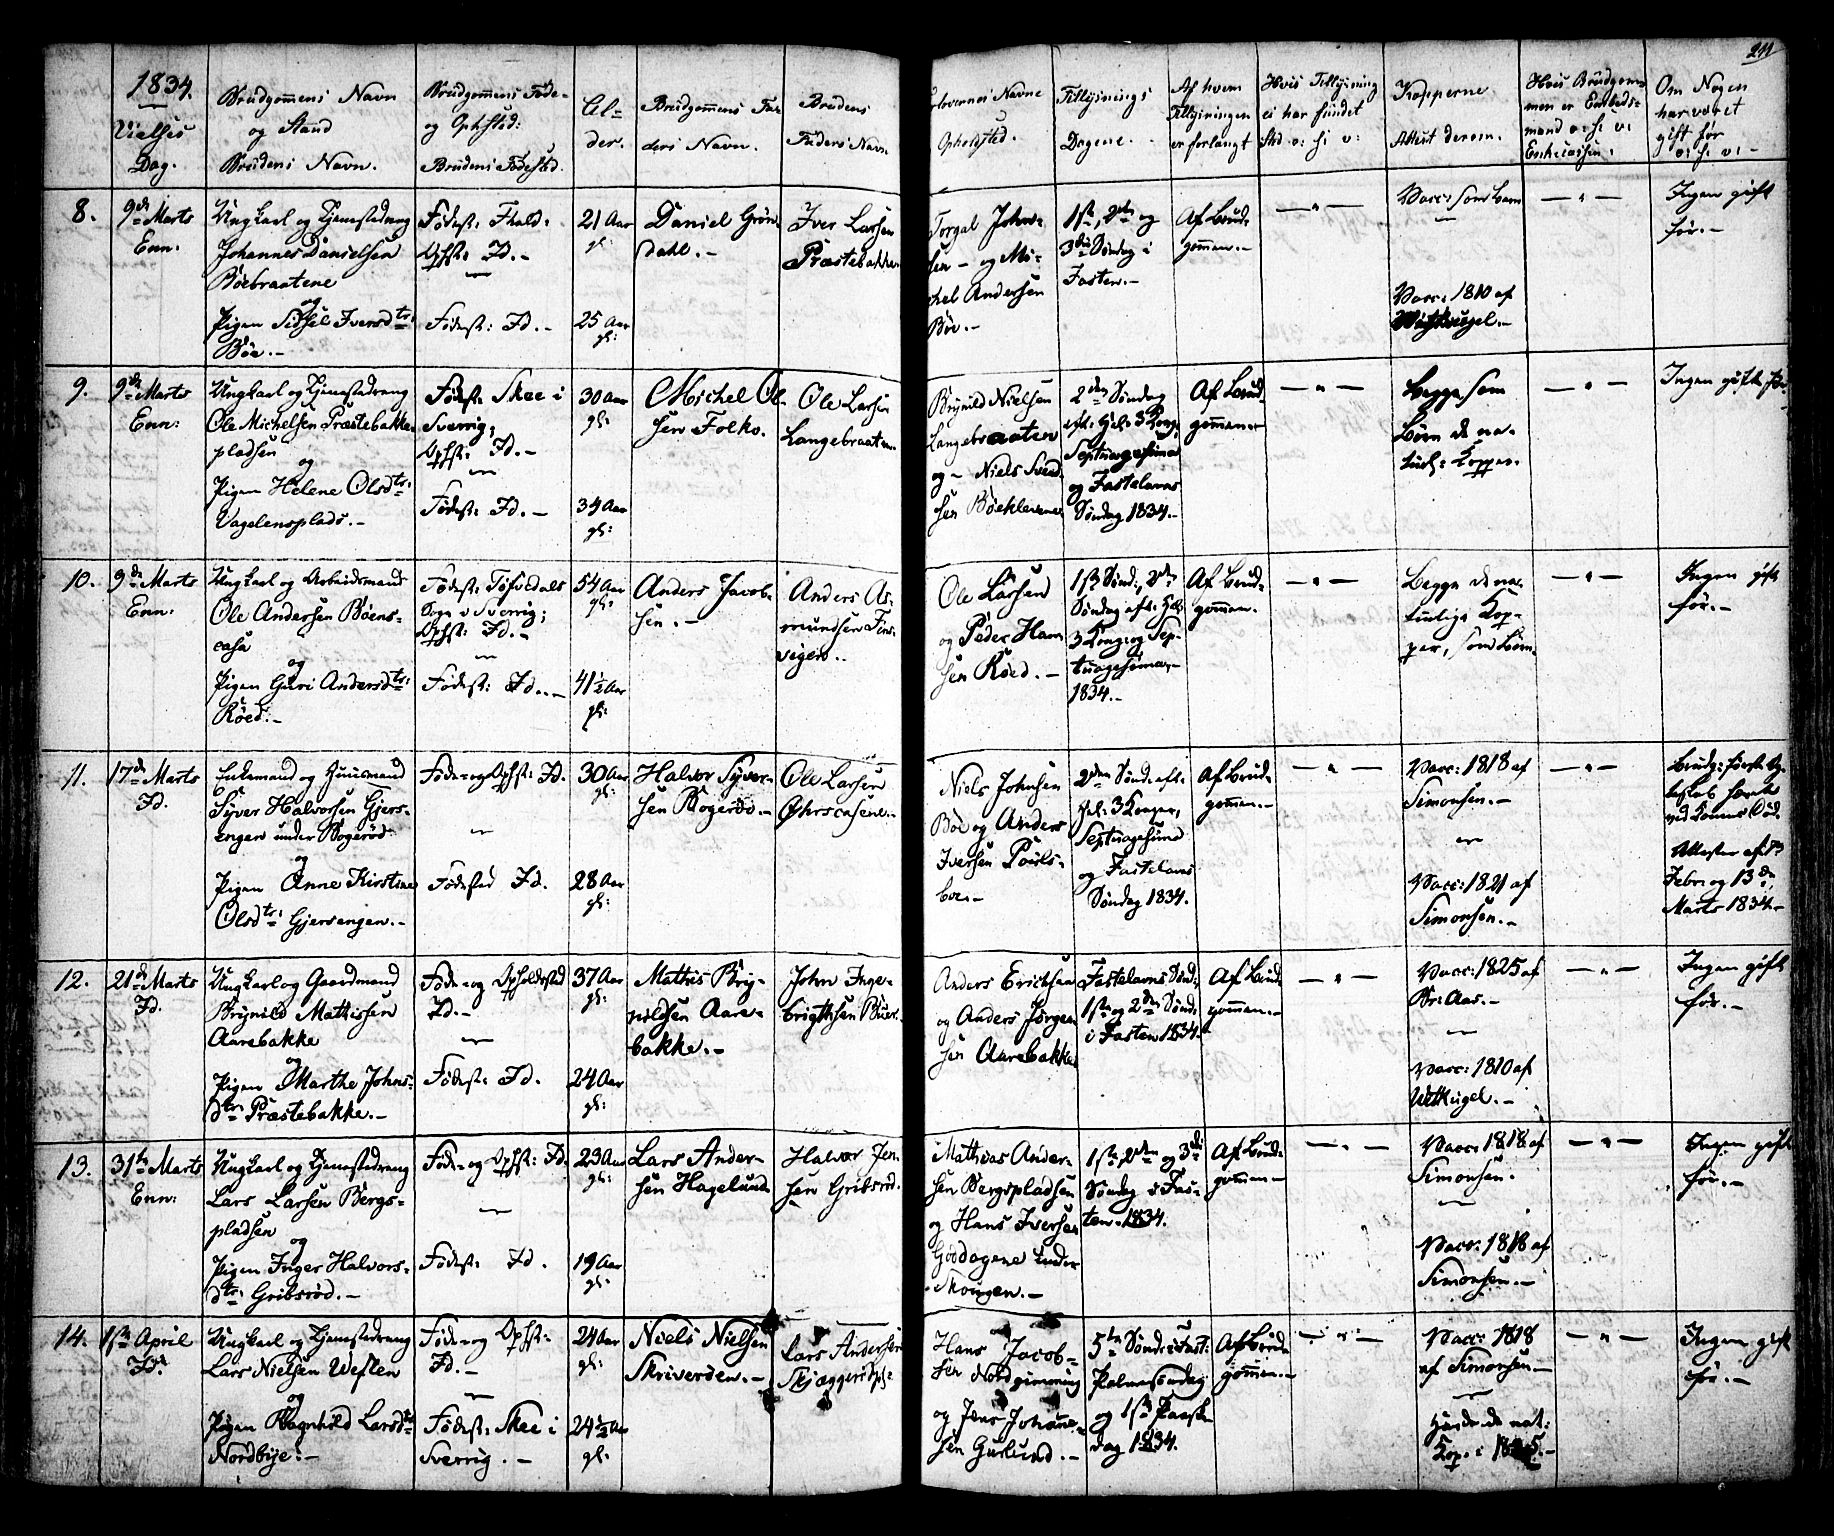 211
1834.
Vielses
Dag.
Brudgommens Navn
og Stand
Brudens Navn.
Brudgommens Føde-
og Ophsted:
Brudens Fødested.
Al-
der.
Brudgommens Fa-
ders Navn.
Brudens
Faders Navn
Forlovernes Navne
Opholdsted.
Tillysnings
Dagene.
Af hvem
Tillysningen
er forlangt
Hvis Tillysning
ei har fundet
Sted o: s: v:
Kopperne
Attest derom.
Hvis Brudgom-
men er Embeds-
mand o: s: v:
Om Nogen
har været
gift før
o: s: v: -
8.
9de Marts
Enn:
Ungkarl og Tjenestedreng
Johannes Danielsen
Böebraatene
og
Pigen Sidsel Iversdtr:
Böe.-
Födest: Fhald-
Ophst: Id.-
Födest: Id.-
21 Aar
gl:
25 Aar
gl:
Daniel Grön-
dahl.-
Iver Larsen
Præstebakke
Torgal John-
sen - og Mi-
chel Andersen
Böe.-
1ste, 2den og
3die Söndag i
Fasten.-
Af Brud-
gommen.-
- " -
Vacc: som barn
Vacc: 1810 af
Wethugel.-
- " -
Ingen gift
før.-
9.
9de Marts
Enn:
Ungkarl og Tjenestedreng
Ole Michelsen Præstebakke-
pladsen
og
Pigen Helene Olsdtr:
Vagelensplads.-
Födest: Skee i
Sverrig;
Ophst: Id.-
Födest: Id.-
30 Aar
gl:
34 Aar
gl:
Michel Ol-
sen Folko.
Ole Larsen
Langebraaten
Brynild Nielsen
Langebraaten
og - Niels Svend-
sen Böeklevene
2den Söndag
eft: Hel: 3 Kong:
Septuagesima
og Fastelavns
Söndag 1834.-
Af Brud-
gommen
- " -
Begge som
Börn de na-
turl: Kopper.
- " -
Ingen gift før.
10.
9de Marts
Enn:
Ungkarl og Arbeidsmand
Ole Andersen Böens-
casa
og
Pigen Guri Andersdtr:
Röed.-
Födest: Tösvedals
Sogn i Sverrig;
Ophst: Id.-
Födest: Id..-
54 Aar
gl:
41½ Aar
gl:
Anders Jacob-
sen.-
Anders As-
mundsen Fins-
vigen..
Ole Larsen
og Peder Han-
sen Röed.-
1ste Sönd:, 2den
Söndag eft: Hel:
3 Konger og Sep-
tuagesima,-
1834.-
Af Brud-
gommen.
- " -
Begge de na-
turlige Kop-
per, som Börn.
- " -
Ingen gift
før.-
11.
17de Marts
Id.
Enkemand og Huusmand
Syver Halvorsen Gjers-
engen under Bogeröd
og
Pigen Anne Kirstine
Olsdtr: Gjersengen.-
Föde- og Ophst: Id.
Födested Id.
30 Aar
gl:
28 Aar
gl:
Halvor Syver-
sen Bogeröd.-
Ole Larsen
Niels Johnsen
Böe og Anders
Iversen Pouls-
boe.-
2den Sönd: eft:
Hel: 3 Konger,
Septuagesima
og Fastelavns
Söndag 1834.
Af Brud-
gommen.-
- " -
Vacc: 1818 af
Simonsen.-
Vacc: 1821 af
Simonsen.-
- " -
Brudg: første Æg-
teskab hævet
ved Konens Död.
Attester af
Febr: og 13de
Marts 1834.-
12.
21de Marts
Id.
Ungkarl og Gaardmand
Brynild Mathissen
Aarebakke
og
Pigen Marthe Johns-
dtr: Præstebakke.-
Föde- og Opholdsted
Id.-
Födest: Id.
37 Aar
gl:
24 Aar
gl:
Mathis Bry-
nildsen Aare-
bakke.-
John Inge-
brigtsen Böer.
Anders Erichsen
og Anders Jörgen-
sen Aarebakke
Fastelavns Sönd:
1ste og 2den Sönd:
i Fasten 1834.
Af Brud-
gommen.-
- " -
Vacc: 1825 af
Br: Aas.-
Vacc: 1810 af
Wethugel.-
- " -
Ingen gift
før.-
13.
31te Marts
Enn:
Ungkarl og Tjenestedreng
Lars Larsen Bergs-
pladsen
og
Pigen Inger Halvors-
dtr: Gribsröd.-
Föde- og Ophst: Id.
Födest: Id.
23 Aar
gl:
19 Aar
gl:
Lars Ander-
sen Hagelund
Halvor Jen-
sen Gribsröd.
Mathias Ander-
sen Bergspladsen
og Hans Iversen
Gödagene under
Skougen.-
1ste, 2den og 3die
Söndag i Fas-
ten. 1834.
Af Brud-
gommen.-
- " -
Vacc: 1818 af
Simonsen.
Vacc: 1818 af
Simonsen.-
- " -
Ingen gift
før.-
14.
1ste April
Id.
Ungkarl og Tjenestedreng
Lars Nielsen Westen
og
Pigen Ragnhild Larsdtr
Nordbye.-
Föde- og Ophst:
Id.-
Födest: Skee i
Sverrig.-
24 Aar
gl:
24½ Aar
gl:
Niels Nielsen
Skriveröen.-
Lars Andersen
Skjæggerödpl:
Hans Jacob-
sen Nordgimming
og Jens Johanne-
sen Gurlund.-
5te Sönd: i Fast:
Palmesöndag
og 1ste Paaske-
dag 1834.
Af Brud-
gommen.-
- " -
Vacc: 1818
af Simonsen.-
Havde de nat:
Kop: i
- " -
Ingen gift
før.-